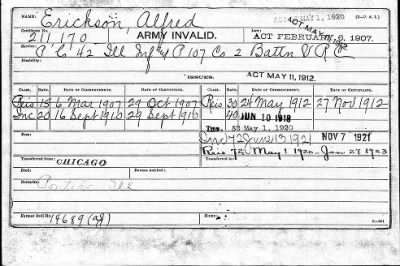 Name: Erickson Alfred ACT MAY 1, 1920
Certificate No. 211170 ARMY INVALID. ACT FEBRUARY 6, 1907.
Service: P, C, 42 Ill Inf P 107 Co 2 Battn V R C
ISSUES. ACT MAY 11, 1912.
CLASS. RATE. DATE OF COMMENCEMENT. DATE OF CERTIFICATE. CLASS. RATE. DATE OF COMMENCEMENT. DATE OF CERTIFICATE.
Reis 15 6 Mar 1907 29 Oct 1907 Reis 30 24 May 1912 27 Nov 1912
Inc 20 16 Sept 1910 29 Sept 1910 40 JUN 10 1918
50 May 1, 1920
Inc 72 June 13 1921 NOV 7 1921
Reis 72 May 1 1920 Jan 27 1923
Transferred from CHICAGO
Pontiac Ill
Former Roll No. 14689